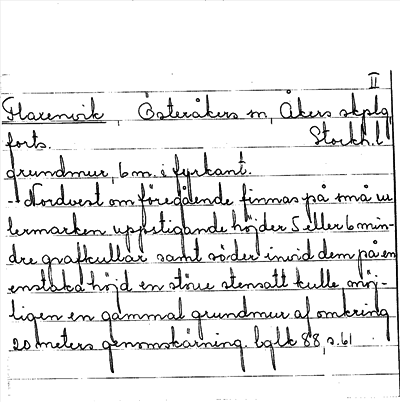 II
Flaxenvik, Österåkers sn, Åkers skplg
forts. Stockh. l
grundmur, 6 m. i fyrkant.
- Nordvest om föregående finnas på små ur
lermarken uppstigande höjder 5 eller 6 min-
dre grafkullar samt söder invid dem på en
enstaka höjd en större stensatt kulle möj-
ligen en gammal grundmur af omkring
20 meters genomskärning. bglk 88, s. 61